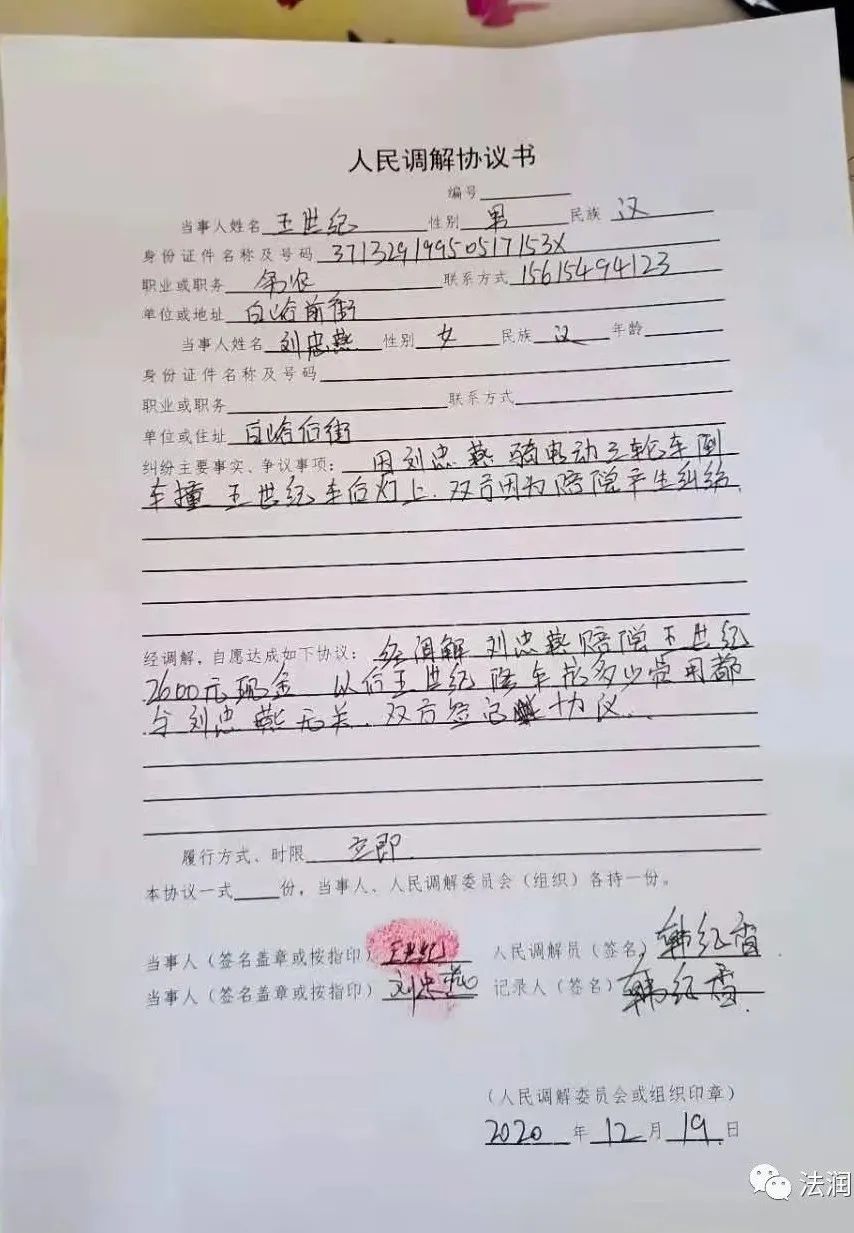 人民调解协议书
编号
当事人姓名 王世纪 性别 男 民族 汉
身份证件名称及号码 37132919950517153X
职业或职务 务农 联系方式 15615494123
单位或地址 白峪前街
当事人姓名 刘忠燕 性别 女 民族 汉 年龄
身份证件名称及号码
职业或职务 联系方式
单位或住址 白峪后街
纠纷主要事实、争议事项： 因刘忠燕骑电动三轮车倒
车撞王世纪车后灯上.双方因为赔偿产生纠纷
经调解，自愿达成如下协议： 经调解刘忠燕赔偿王世纪
2600元现金 以后王世纪修车花多少费用都
与刘忠燕无关.双方签 协议.
履行方式、时限 立即.
本协议一式 份，当事人、人民调解委员会（组织）各持一份。
当事人（签名盖章或按指印） 王世纪 人民调解员（签名） 韩纪香
当事人（签名盖章或按指印） 刘忠燕 记录人（签名） 韩纪香.
（人民调解委员会或组织印章）
2020 年 12 月 19 日
法润